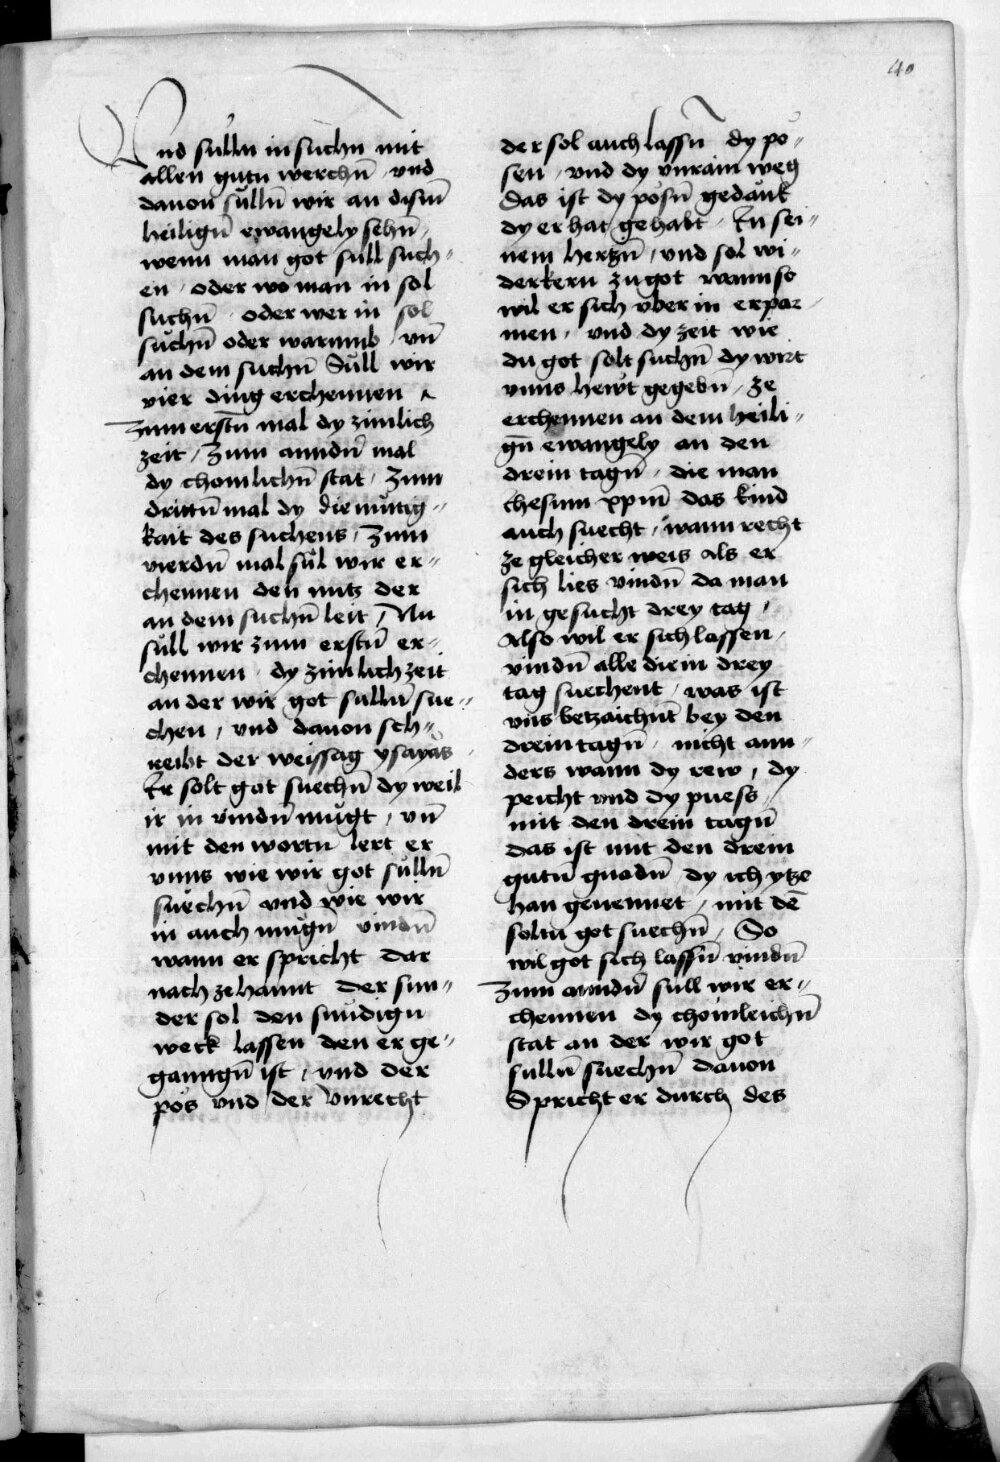 40
Vnd sulln in suchn mit
allen gutn werchn̄ / vnd
dauon sulln̄ wir an dism̄
heilign̄ ewangely sehn̄ /
wenn man got sull such„
en / oder wo man in sol
suchn̄ / oder wer in sol
suchn̄ oder warumb / vn̄
an dem suchn̄ Sull wir
vier ding erchennen
Zum erstn̄ mal dy zimlich
zeit / Zum anndn̄ mal
dy chomlichn̄ stat / Zum
drittn̄ mal dy diemuttig„
kait des suchens / Zum
vierdn̄ mal sul wir er„
chennen den nutz der
an dem suchn̄ leit / Nu
sull wir zum erstn̄ er„
chennen / dy zimlich zeit
an der wir got sulln̄ sue„
chen / vnd dauon sch„
reibt der weissag ysayas
Er solt got suechn̄ dy weil
ir in vindn̄ mugt / vn̄
mit den wortn lert er
vnns wie wir got sulln̄
suechn̄ vnd wie wir
in auch mugn̄ vindn̄
wann er spricht dar
nach zehannt der sun„
der sol den sundign
weck lassen den er ge„
ganngn̄ ist / vnd der
pos vnd der vnrecht
der sol auch lassn̄ dy po„
sen / vnd dy vnrain weg
das ist dy posn̄ gedank
dy er hat gehabt / En sei„
nem hertzn̄ / vnd sol wi„
derkern zu got wann so
wil er sich vber in erpar
men / vnd dy zeit wie
du got solt suchn̄ dy wirt
vnns hewt gegebn̄ / ze
erchennen an dem heili„
gn̄ ewangely an den
drein tagn̄ / die man
Ihesum xpm̄ das kind
auch suecht / wann recht
ze gleicher weis als er
sich lies vindn̄ da man
in gesucht drey tag /
Also wil er sich lassen /
vindn̄ alle die in drey
tag suechent / was ist
vns betzaichnt bey den
drein tagn̄ / nicht ann„
ders wann dy rew / dy
peicht vnd dy puess /
mit den drein tagn̄
das ist mit den drein
gutn̄ gnadn̄ dy ich ytze
han genennet / mit de̅
soltu got suechn̄ / So
wil got sich lassn̄ vindn̄
Zum anndn̄ sull wir er„
chennen dy chomleichn̄
stat an der wir got
sulln̄ suechn̄ dauon
Spricht er durch des